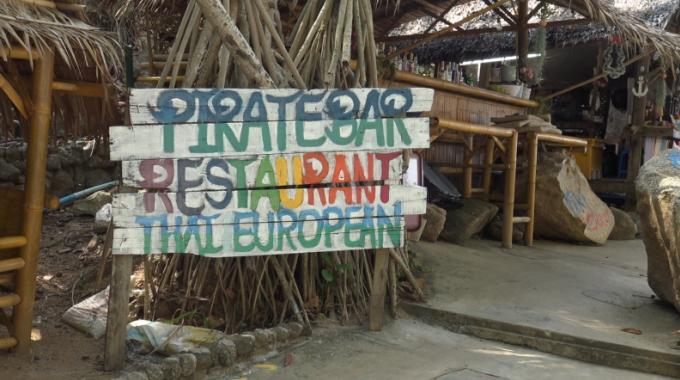 PIRATEBAR
RESTAURANT
THAI EUROPEAN